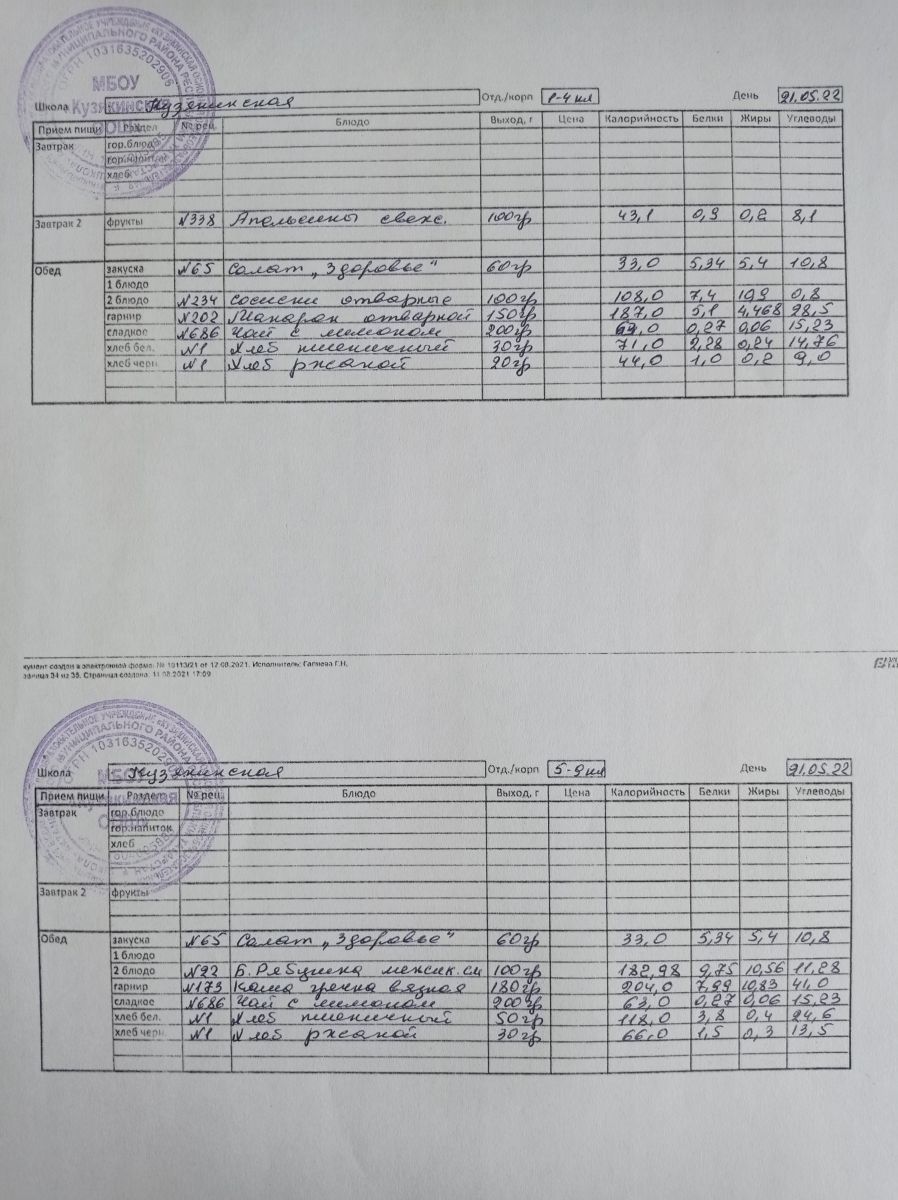 МБОУ
Школа Кузякинская Отд./корп 1-4 кл День 21.05.22
Прием пищи Раздел № рец. Блюдо Выход, г Цена Калорийность Белки Жиры Углеводы
Завтрак гор.блюдо
гор.напиток
хлеб
Завтрак 2 фрукты №338 Апельсины свеж. 100гр 43,1 0,9 0,2 8,1
Обед закуска №65 Салат „Здоровье" 60гр 33,0 5,34 5,4 10,8
1 блюдо
2 блюдо №234 сосиски отварные 100гр 108,0 7,4 10,9 0,8
гарнир №202 Макарон отварной 150гр 187,0 5,1 4,468 28,5
сладкое №686 Чай с лимоном 200гр 0,27 0,06 15,23
хлеб бел. №1 Хлеб пшеничный 30гр 71,0 2,28 0,24 14,76
хлеб черн. №1 Хлеб ржаной 20гр 44,0 1,0 0,2 9,0
кумент создан в электронной форме. № 10113/21 от 12.08.2021. Исполнитель: Галиева Г.Н.
аница 34 из 35. Страница создана: 11.08.2021 17:09
Школа Кузякинская Отд./корп 5-9 кл День 21.05.22
Прием пищи Раздел № рец. Блюдо Выход, г Цена Калорийность Белки Жиры Углеводы
Завтрак гор.блюдо
гор.напиток
хлеб
Завтрак 2 фрукты
Обед закуска №65 Салат „Здоровье" 60гр 33,0 5,34 5,4 10,8
1 блюдо
2 блюдо №92 100гр 182,98 9,75 10,56 11,28
гарнир №173 Каша гречка вязкая 180гр 204,0 7,99 10,83 41,0
сладкое №686 Чай с лимоном 200гр 63,0 0,27 0,06 15,23
хлеб бел. №1 Хлеб пшеничный 50гр 118,0 3,8 0,4 24,6
хлеб черн. №1 Хлеб ржаной 30гр 66,0 1,5 0,3 13,5